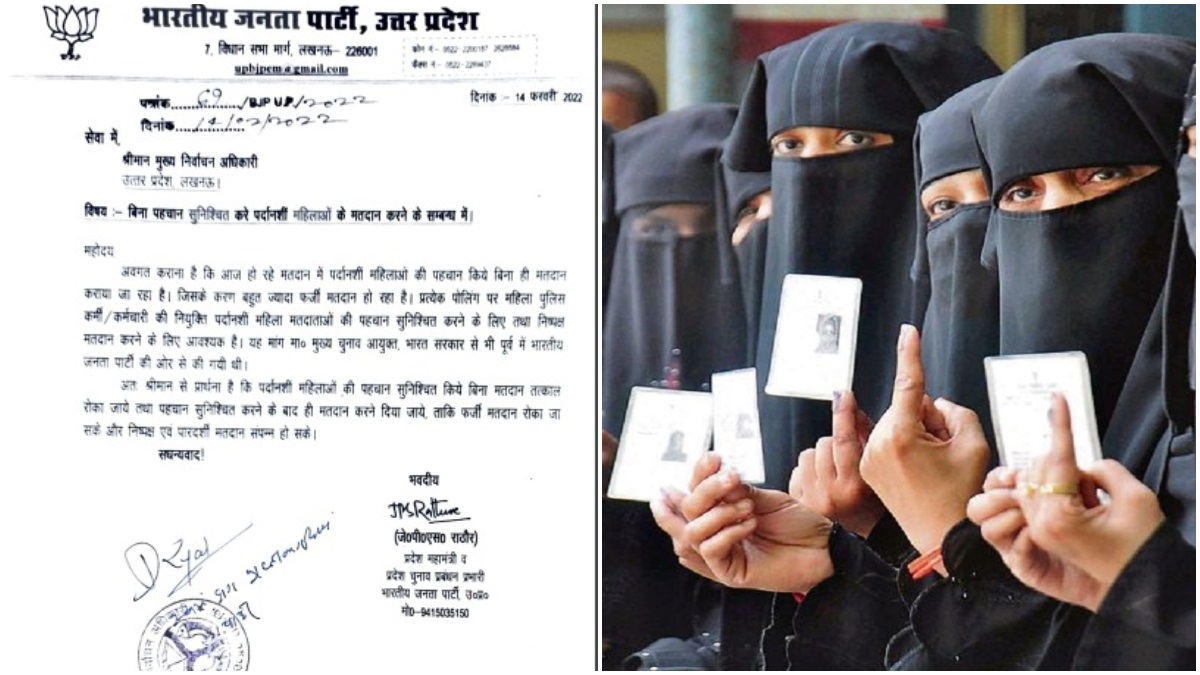 भारतीय जनता पार्टी, उत्तर प्रदेश
7, विधान सभा मार्ग, लखनऊ– 226001
upbjpem@gmail.com
फोन नं–
फैक्स नं–
पत्रांक........./BJP U.P./2022
दिनांक :- 14 फरवरी 2022
दिनांक....14/02/2022
सेवा में,
श्रीमान मुख्य निर्वाचन अधिकारी
उत्तर प्रदेश, लखनऊ।
विषय :– बिना पहचान सुनिश्चित करे पर्दानशीं महिलाओं के मतदान करने के सम्बन्ध में।
महोदय
अवगत कराना है कि आज हो रहे मतदान में पर्दानशीं महिलाओं की पहचान किये बिना ही मतदान
कराया जा रहा है। जिसके करण बहुत ज्यादा फर्जी मतदान हो रहा है। प्रत्येक पोलिंग पर महिला पुलिस
कर्मी/कर्मचारी की नियुक्ति पर्दानशी महिला मतदाताओं की पहचान सुनिश्चित करने के लिए तथा निष्पक्ष
मतदान करने के लिए आवश्यक है। यह मांग मा० मुख्य चुनाव आयुक्त, भारत सरकार से भी पूर्व में भारतीय
जनता पार्टी की ओर से की गयी थी।
अतः श्रीमान से प्रार्थना है कि पर्दानशीं महिलाओं की पहचान सुनिश्चित किये बिना मतदान तत्काल
रोका जाये तथा पहचान सुनिश्चित करने के बाद ही मतदान करने दिया जाये, ताकि फर्जी मतदान रोका जा
सके और निष्पक्ष एवं पारदर्शी मतदान संपन्न हो सके।
सधन्यवाद!
भवदीय
JPS Rathore
(जे०पी०एस० राठौर)
प्रदेश महामंत्री व
प्रदेश चुनाव प्रबंधन प्रभारी
भारतीय जनता पार्टी, उ०प्र०
मो०–9415035150